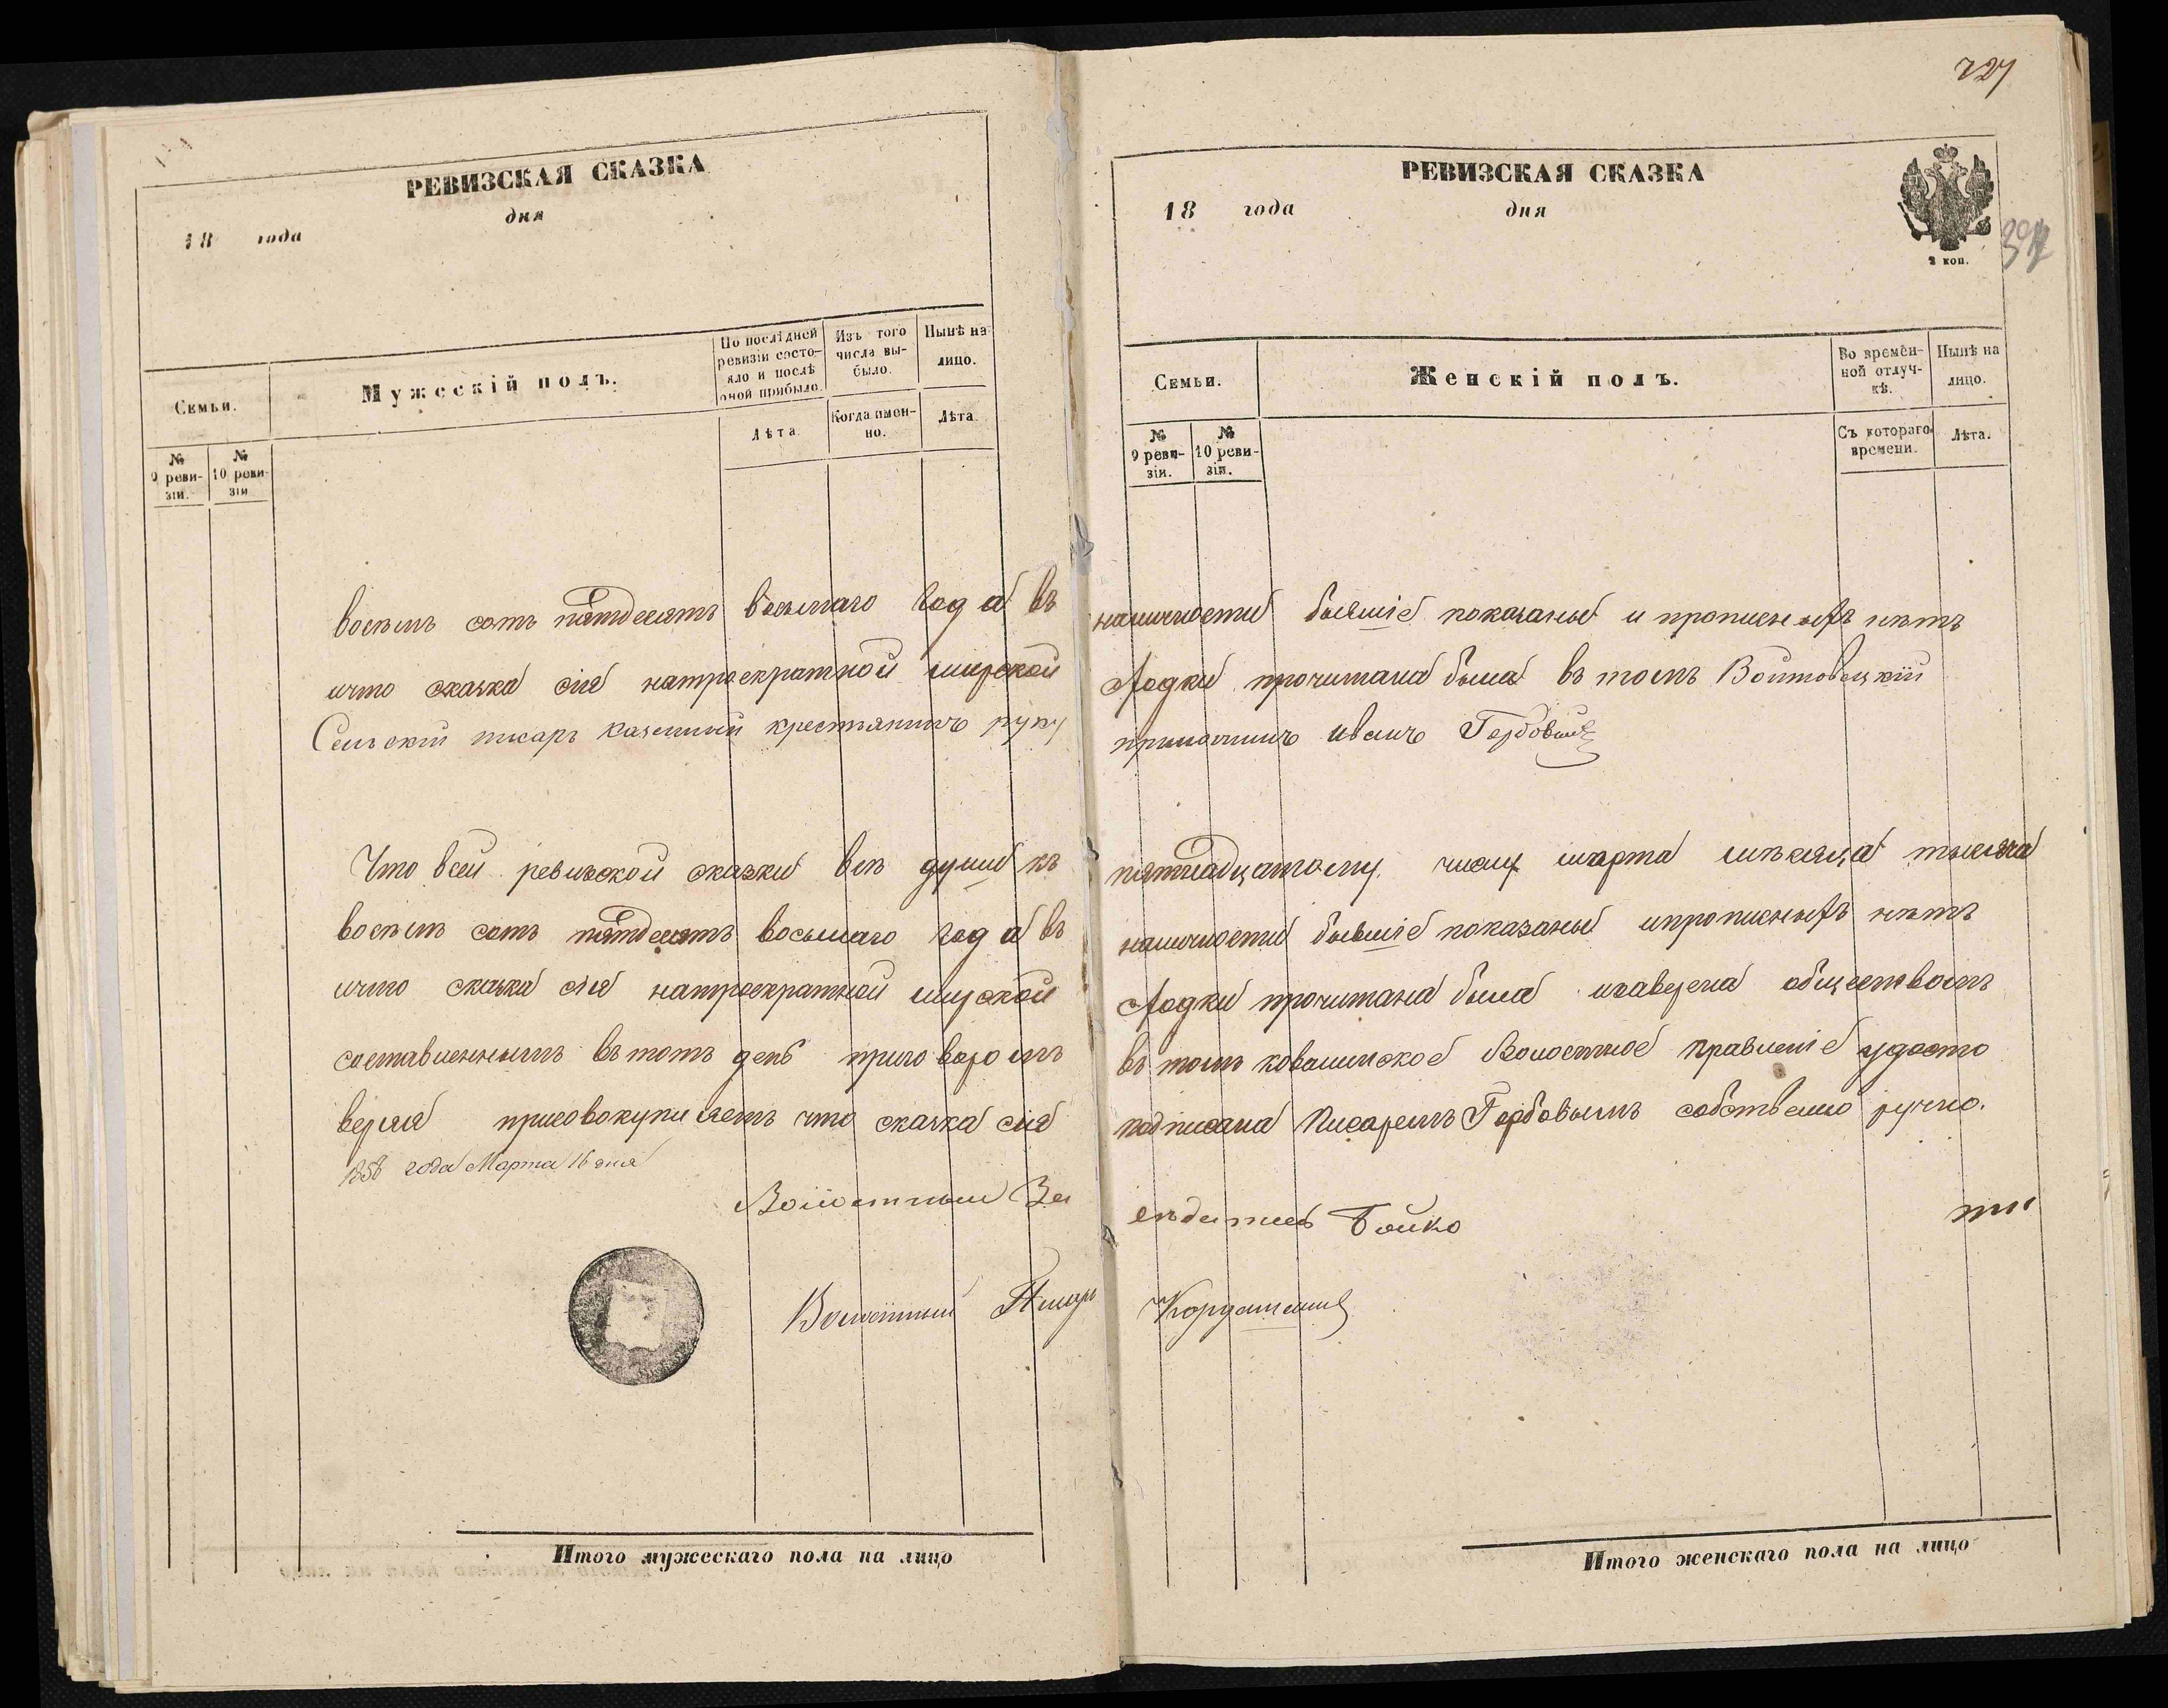 727
397
РЕВИЗСКАЯ СКАЗКА
18 года дня
Семьи.
Мужескій полъ.
По послѣдней ревизіи состояло и послѣ оной прибыло.
Изъ того числа выбыло.
Нынѣ на лицо.
Лѣта.
Когда именно.
Лѣта.
№ 9 ревизіи.
№ 10 ревизіи
восемъ сотъ пятдесятъ восьмаго года въ
что сказка сія на троекратной мирской
Сельскій писарь казенный крестьянинъ руку
Что в сей ревизской сказки всѣ души къ
восемъ сотъ пятдесятъ восьмаго года въ
что сказка сія на троекратной мирской
составленнымъ въ тотъ день приговоромъ
веряя присовокупляетъ что сказка сія
1858 года Марта 16 дня
Волостный За
Волостный Писарь
Итого мужескаго пола на лицо
РЕВИЗСКАЯ СКАЗКА
18 года дня
2 коп.
Семьи.
Женскій полъ.
Во временной отлучкѣ.
Нынѣ на лицо.
№ 9 ревизіи.
№ 10 ревизіи.
Съ котораго времени.
Лѣта.
наличности бывшіе показаны и прописныхъ нѣтъ
сходки прочитана была въ томъ Войтовецкій
приложилъ Иванъ
пятнадцатому числу марта мѣсяца тысяча
наличности бывшіе показаны и прописныхъ нѣтъ
сходки прочитана была и заверена обществомъ
въ томъ волостное правленіе удосто
подписана Писаремъ Горбовымъ собственно ручно.
сѣдатель Бойко
Итого женскаго пола на лицо